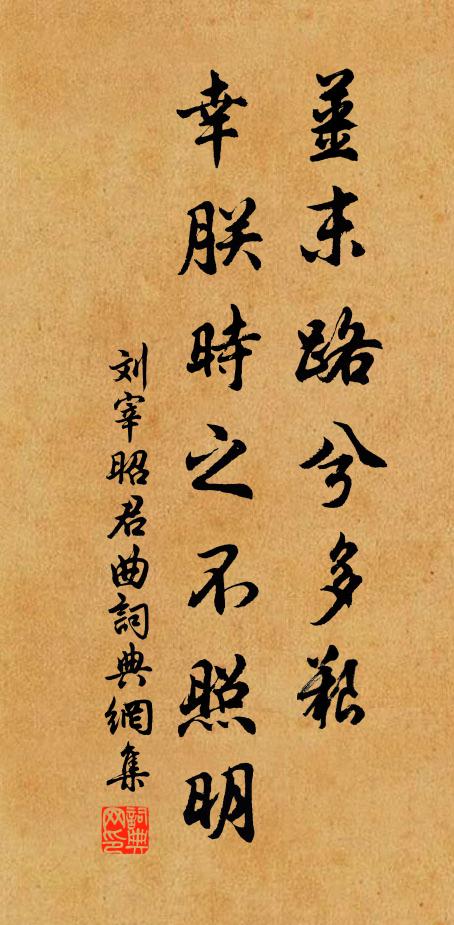 薑末路兮多艱
幸朕時之不照明
刘宰昭君曲詞典網集
詞典网印